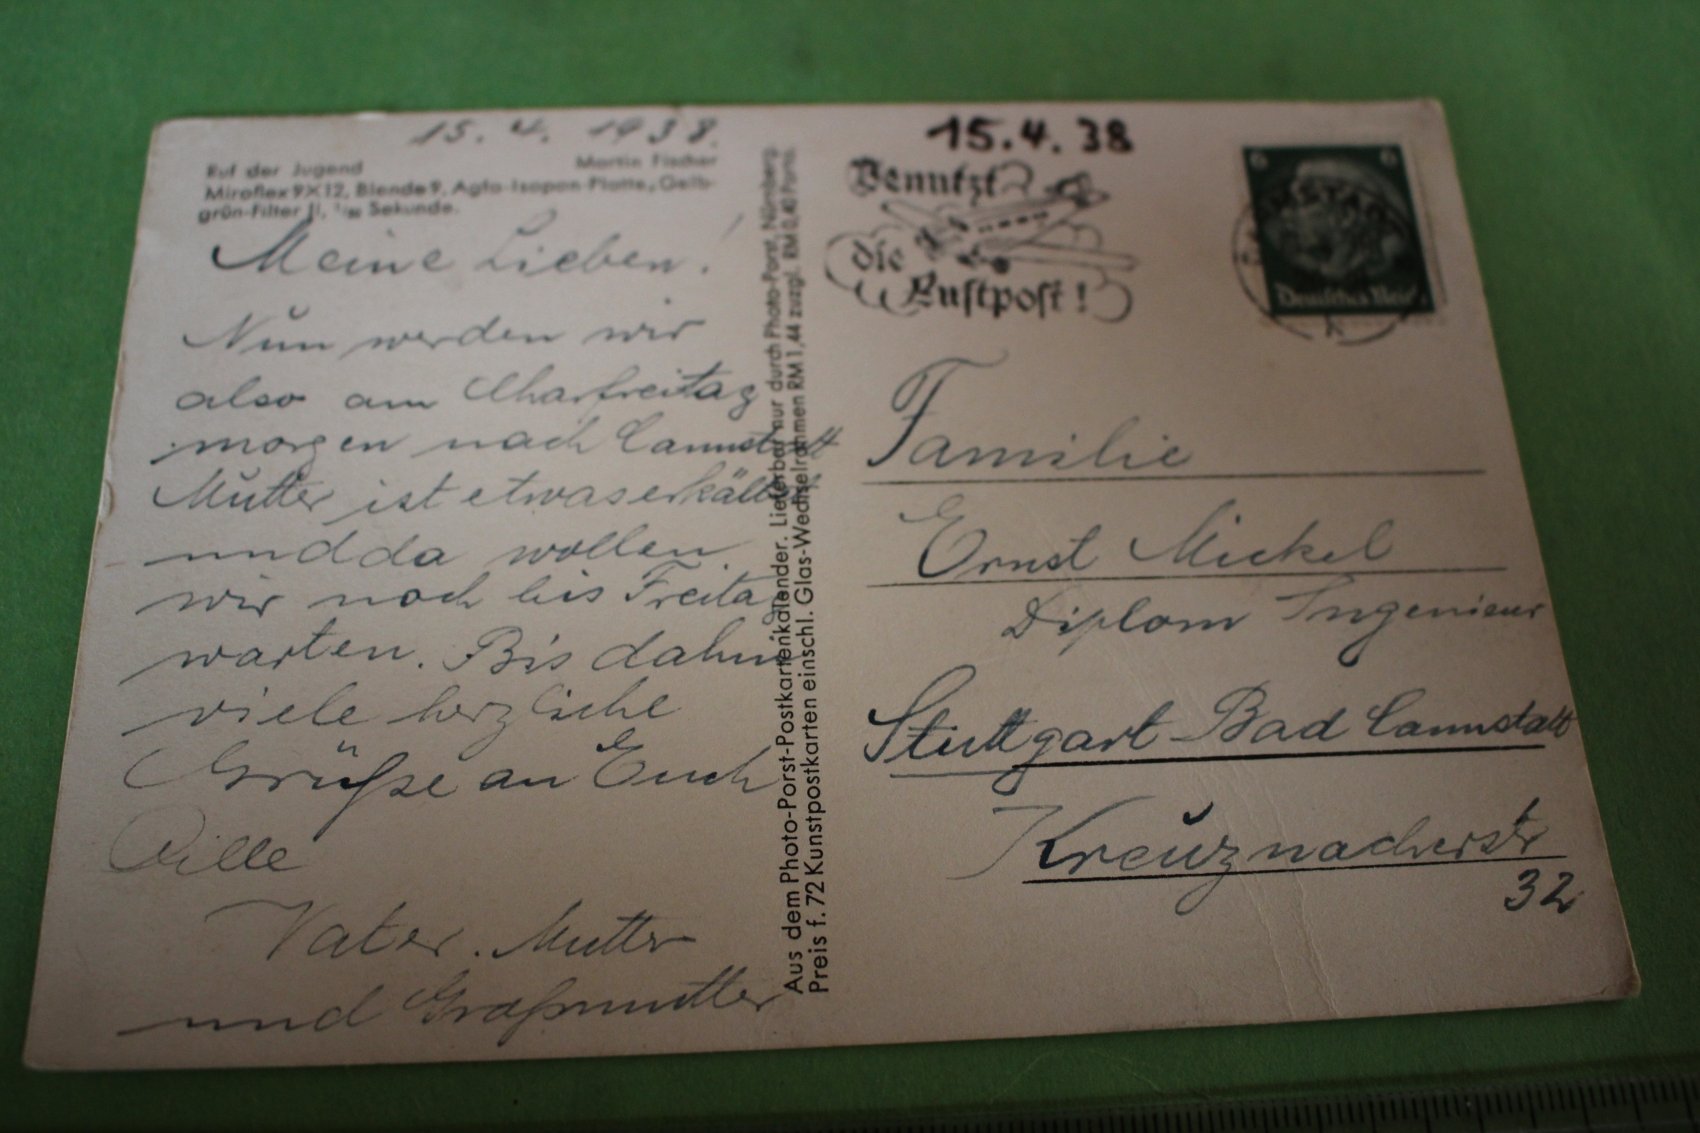 15. 4. 1938.
Ruf der Jugend Martin Fischer
Miroflex 9×12, Blende 9, Agfa-Isopan-Platte, Gelb-
grün-Filter II, Sekunde.
Meine Lieben!
Nun werden wir
also am Charfreitag
morgen nach Cannstatt
Mutter ist etwas erkältet
und da wollen
wir noch bis Freitag
warten. Bis dahin
viele herzliche
Grüße an Euch
Alle
Vater. Mutter
und Großmutter
Aus dem Photo-Porst-Postkartenkalender. Lieferbar nur durch Photo-Porst, Nürnberg.
Preis f. 72 Kunstpostkarten einschl. Glas-Wechselrahmen RM 1,44 zuzgl. RM 0,40 Porto.
15.4.38
Benutzt
die
Luftpost!
6 6
Deutsches Reich
Familie
Ernst Mickel
Diplom Ingenieur
Stuttgart-Bad Cannstatt
Kreuznacherstr
32